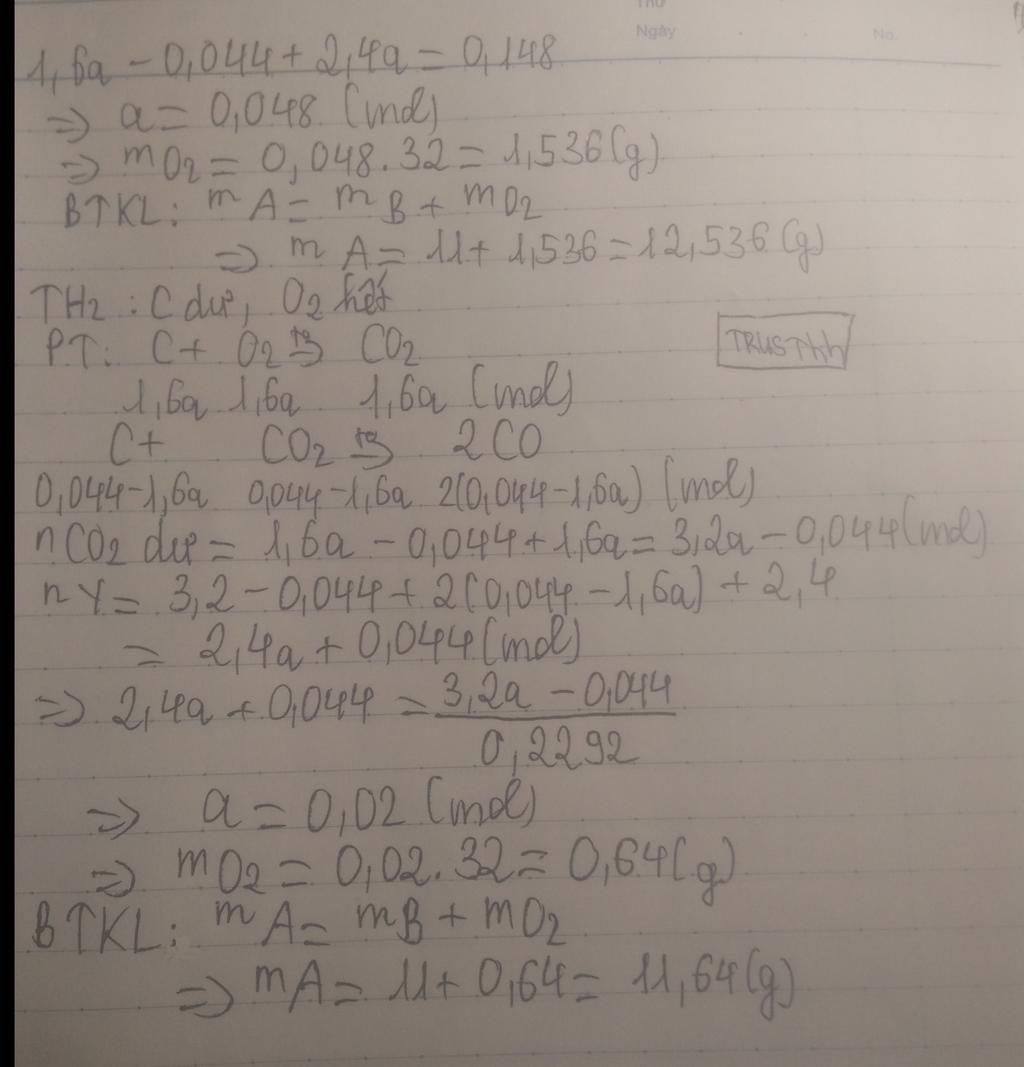 Thứ
Ngày No.
1,6a - 0,044 + 2,4a = 0,148
=> a = 0,048 (mol)
=> mO2 = 0,048.32 = 1,536 (g)
BTKL: mA = mB + mO2
=> mA = 11 + 1,536 = 12,536 (g)
TH2 : C dư, O2 hết
PT: C + O2 t° → CO2
TRUSThh
1,6a 1,6a 1,6a (mol)
C + CO2 t° → 2CO
0,044-1,6a 0,044-1,6a 2(0,044-1,6a) (mol)
nCO2 dư = 1,6a - 0,044 + 1,6a = 3,2a - 0,044 (mol)
nY = 3,2 - 0,044 + 2(0,044 - 1,6a) + 2,4
= 2,4a + 0,044 (mol)
=> 2,4a + 0,044 = 3,2a - 0,044
0,2292
=> a = 0,02 (mol)
=> mO2 = 0,02.32 = 0,64 (g)
BTKL: mA = mB + mO2
=> mA = 11 + 0,64 = 11,64 (g)